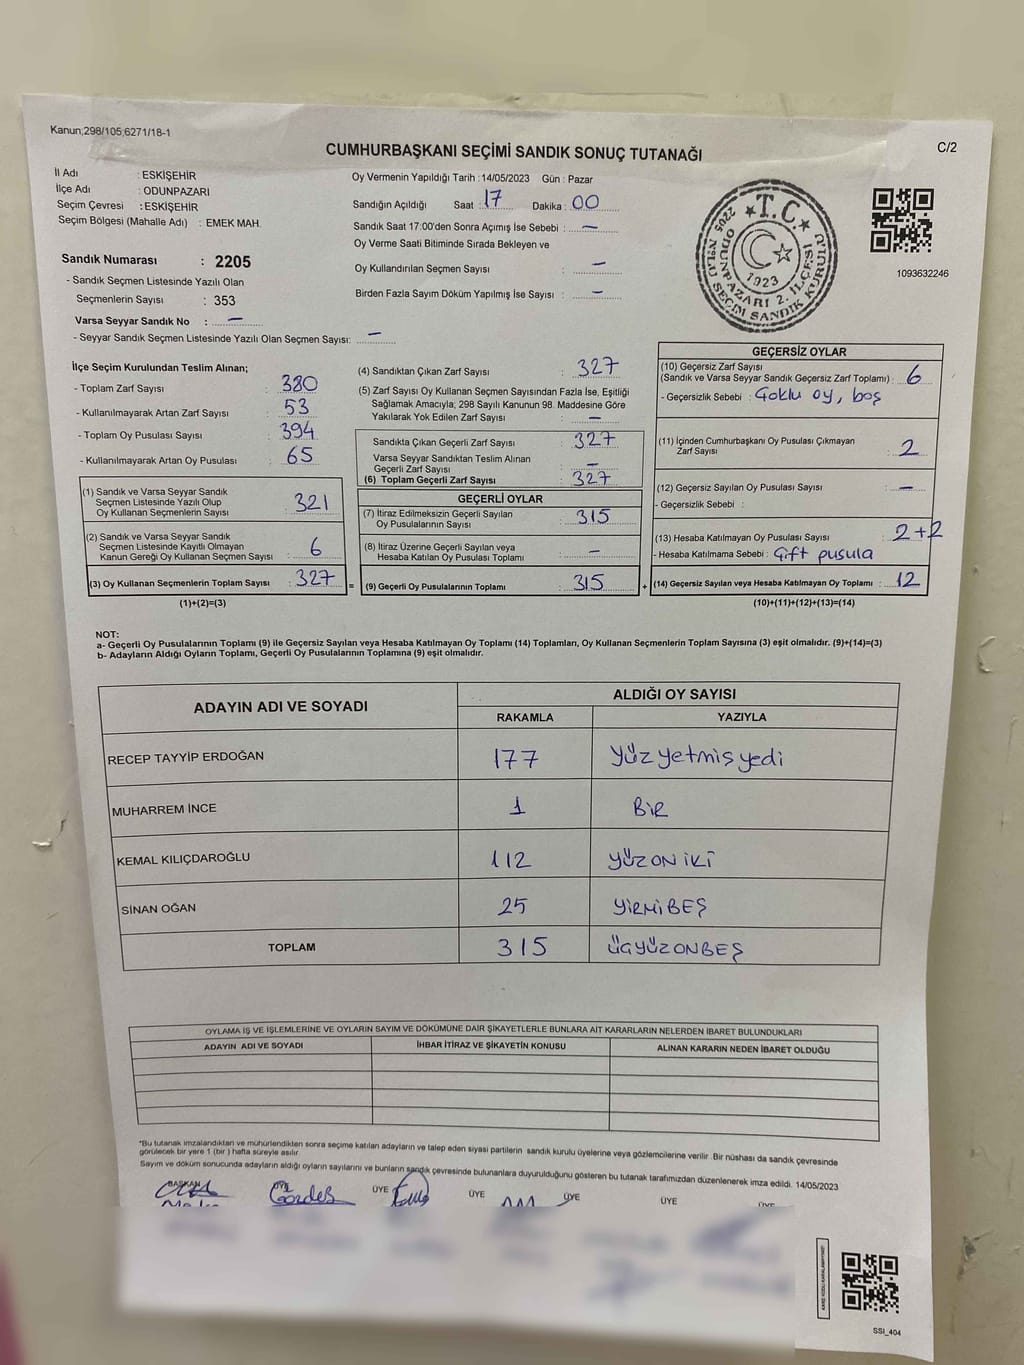 Kanun;298/105;6271/18-1
C/2
CUMHURBAŞKANI SEÇİMİ SANDIK SONUÇ TUTANAĞI
İl Adı : ESKİŞEHİR
İlçe Adı : ODUNPAZARI
Seçim Çevresi : ESKİŞEHİR
Seçim Bölgesi (Mahalle Adı) : EMEK MAH.
Sandık Numarası : 2205
- Sandık Seçmen Listesinde Yazılı Olan
Seçmenlerin Sayısı : 353
Varsa Seyyar Sandık No : —
- Seyyar Sandık Seçmen Listesinde Yazılı Olan Seçmen Sayısı: —
Oy Vermenin Yapıldığı Tarih : 14/05/2023 Gün : Pazar
Sandığın Açıldığı Saat : 17 Dakika : 00
Sandık Saat 17:00'den Sonra Açımış İse Sebebi : —
Oy Verme Saati Bitiminde Sırada Bekleyen ve
Oy Kullandırılan Seçmen Sayısı : —
Birden Fazla Sayım Döküm Yapılmış İse Sayısı : —
T.C.
1923
2205 NOLU SEÇİM SANDIK KURULU
ODUNPAZARI 2. İLÇESİ
1093632246
İlçe Seçim Kurulundan Teslim Alınan;
- Toplam Zarf Sayısı : 380
- Kullanılmayarak Artan Zarf Sayısı : 53
- Toplam Oy Pusulası Sayısı : 394
- Kullanılmayarak Artan Oy Pusulası : 65
(1) Sandık ve Varsa Seyyar Sandık
Seçmen Listesinde Yazılı Olup
Oy Kullanan Seçmenlerin Sayısı : 321
(2) Sandık ve Varsa Seyyar Sandık
Seçmen Listesinde Kayıtlı Olmayan
Kanun Gereği Oy Kullanan Seçmen Sayısı : 6
(3) Oy Kullanan Seçmenlerin Toplam Sayısı : 327
(1)+(2)=(3)
(4) Sandıktan Çıkan Zarf Sayısı : 327
(5) Zarf Sayısı Oy Kullanan Seçmen Sayısından Fazla İse, Eşitliği
Sağlamak Amacıyla, 298 Sayılı Kanunun 98. Maddesine Göre
Yakılarak Yok Edilen Zarf Sayısı : —
Sandıkta Çıkan Geçerli Zarf Sayısı : 327
Varsa Seyyar Sandıktan Teslim Alınan
Geçerli Zarf Sayısı : —
(6) Toplam Geçerli Zarf Sayısı : 327
GEÇERLİ OYLAR
(7) İtiraz Edilmeksizin Geçerli Sayılan
Oy Pusulalarının Sayısı : 315
(8) İtiraz Üzerine Geçerli Sayılan veya
Hesaba Katılan Oy Pusulası Toplamı : —
= (9) Geçerli Oy Pusulalarının Toplamı : 315
GEÇERSİZ OYLAR
(10) Geçersiz Zarf Sayısı
(Sandık ve Varsa Seyyar Sandık Geçersiz Zarf Toplamı) : 6
- Geçersizlik Sebebi : Çoklu oy, boş
(11) İçinden Cumhurbaşkanı Oy Pusulası Çıkmayan
Zarf Sayısı : 2
(12) Geçersiz Sayılan Oy Pusulası Sayısı : —
- Geçersizlik Sebebi :
(13) Hesaba Katılmayan Oy Pusulası Sayısı : 2+2
- Hesaba Katılmama Sebebi : Çift pusula
+ (14) Geçersiz Sayılan veya Hesaba Katılmayan Oy Toplamı : 12
(10)+(11)+(12)+(13)=(14)
NOT:
a- Geçerli Oy Pusulalarının Toplamı (9) ile Geçersiz Sayılan veya Hesaba Katılmayan Oy Toplamı (14) Toplamları, Oy Kullanan Seçmenlerin Toplam Sayısına (3) eşit olmalıdır. (9)+(14)=(3)
b- Adayların Aldığı Oyların Toplamı, Geçerli Oy Pusulalarının Toplamına (9) eşit olmalıdır.
ADAYIN ADI VE SOYADI
ALDIĞI OY SAYISI
RAKAMLA YAZIYLA
RECEP TAYYİP ERDOĞAN 177 Yüzyetmişyedi
MUHARREM İNCE 1 BİR
KEMAL KILIÇDAROĞLU 112 YÜZONİKİ
SİNAN OĞAN 25 YİRMİBEŞ
TOPLAM 315 ÜÇYÜZONBEŞ
OYLAMA İŞ VE İŞLEMLERİNE VE OYLARIN SAYIM VE DÖKÜMÜNE DAİR ŞİKAYETLERLE BUNLARA AİT KARARLARIN NELERDEN İBARET BULUNDUKLARI
ADAYIN ADI VE SOYADI İHBAR İTİRAZ VE ŞİKAYETİN KONUSU ALINAN KARARIN NEDEN İBARET OLDUĞU
*Bu tutanak imzalandıktan ve mühürlendikten sonra seçime katılan adayların ve talep eden siyasi partilerin sandık kurulu üyelerine veya gözlemcilerine verilir. Bir nüshası da sandık çevresinde
görülecek bir yere 1 (bir ) hafta süreyle asılır.
Sayım ve döküm sonucunda adayların aldığı oyların sayılarını ve bunların sandık çevresinde bulunanlara duyurulduğunu gösteren bu tutanak tarafımızdan düzenlenerek imza edildi. 14/05/2023
BAŞKAN ÜYE ÜYE ÜYE ÜYE ÜYE ÜYE
SSI_404